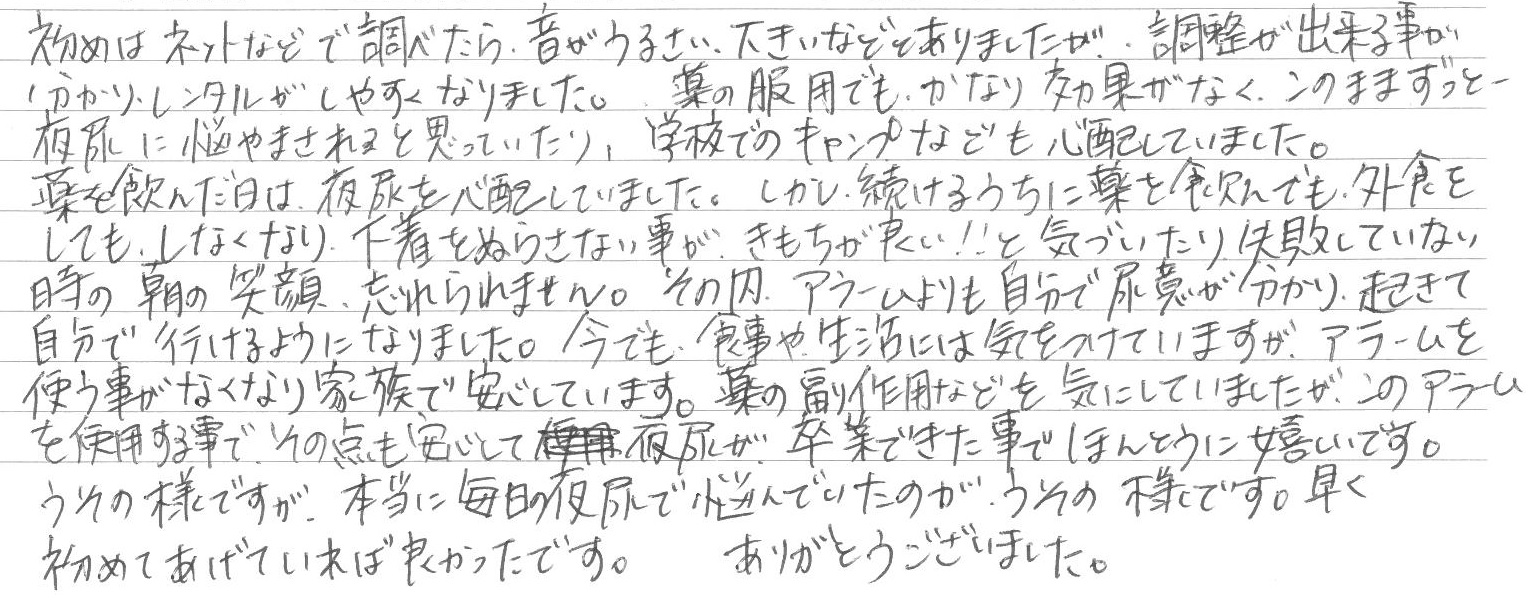 初めは ネットなどで調べたら、音がうるさい、大きいなどとありましたが、調整が出来る事が
分かり、レンタルが しやすくなりました。 薬の服用でも、かなり 効果がなく、このままずっと
夜尿に悩やまされると思っていたり、学校でのキャンプなども心配していました。
薬を飲んだ日は、夜尿を心配していました。しかし、続けるうちに薬を飲んでも、外食を
しても、しなくなり、下着をぬらさない事が、きもちが良い!!と気づいたり、失敗していない
時の朝の笑顔、忘れられません。その内、アラームよりも自分で尿意が分かり、起きて
自分で行けるようになりました。今でも、食事や、生活には気をつけていますが、アラームを
使う事がなくなり家族で安心しています。薬の副作用などを気にしていましたが、このアラーム
を使用する事で、その点も安心して 夜尿が、卒業できた事でほんとうに嬉しいです。
うその様ですが、本当に毎日の夜尿で悩んでいたのが、うその様です。早く
初めてあげていれば良かったです。 ありがとうございました。